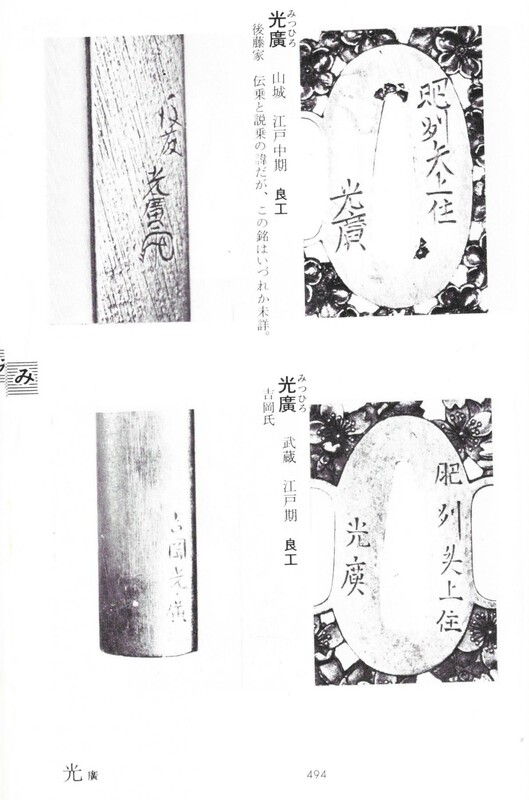 肥州矢上住
光廣
みつひろ
光廣 山城 江戸中期 良工
後藤家 伝乗と説乗の諱だが、この銘はいづれか未詳。
後藤 光廣
肥州矢上住
光廣
みつひろ
光廣 武蔵 江戸期 良工
吉岡氏
吉岡光廣
み
光廣
494